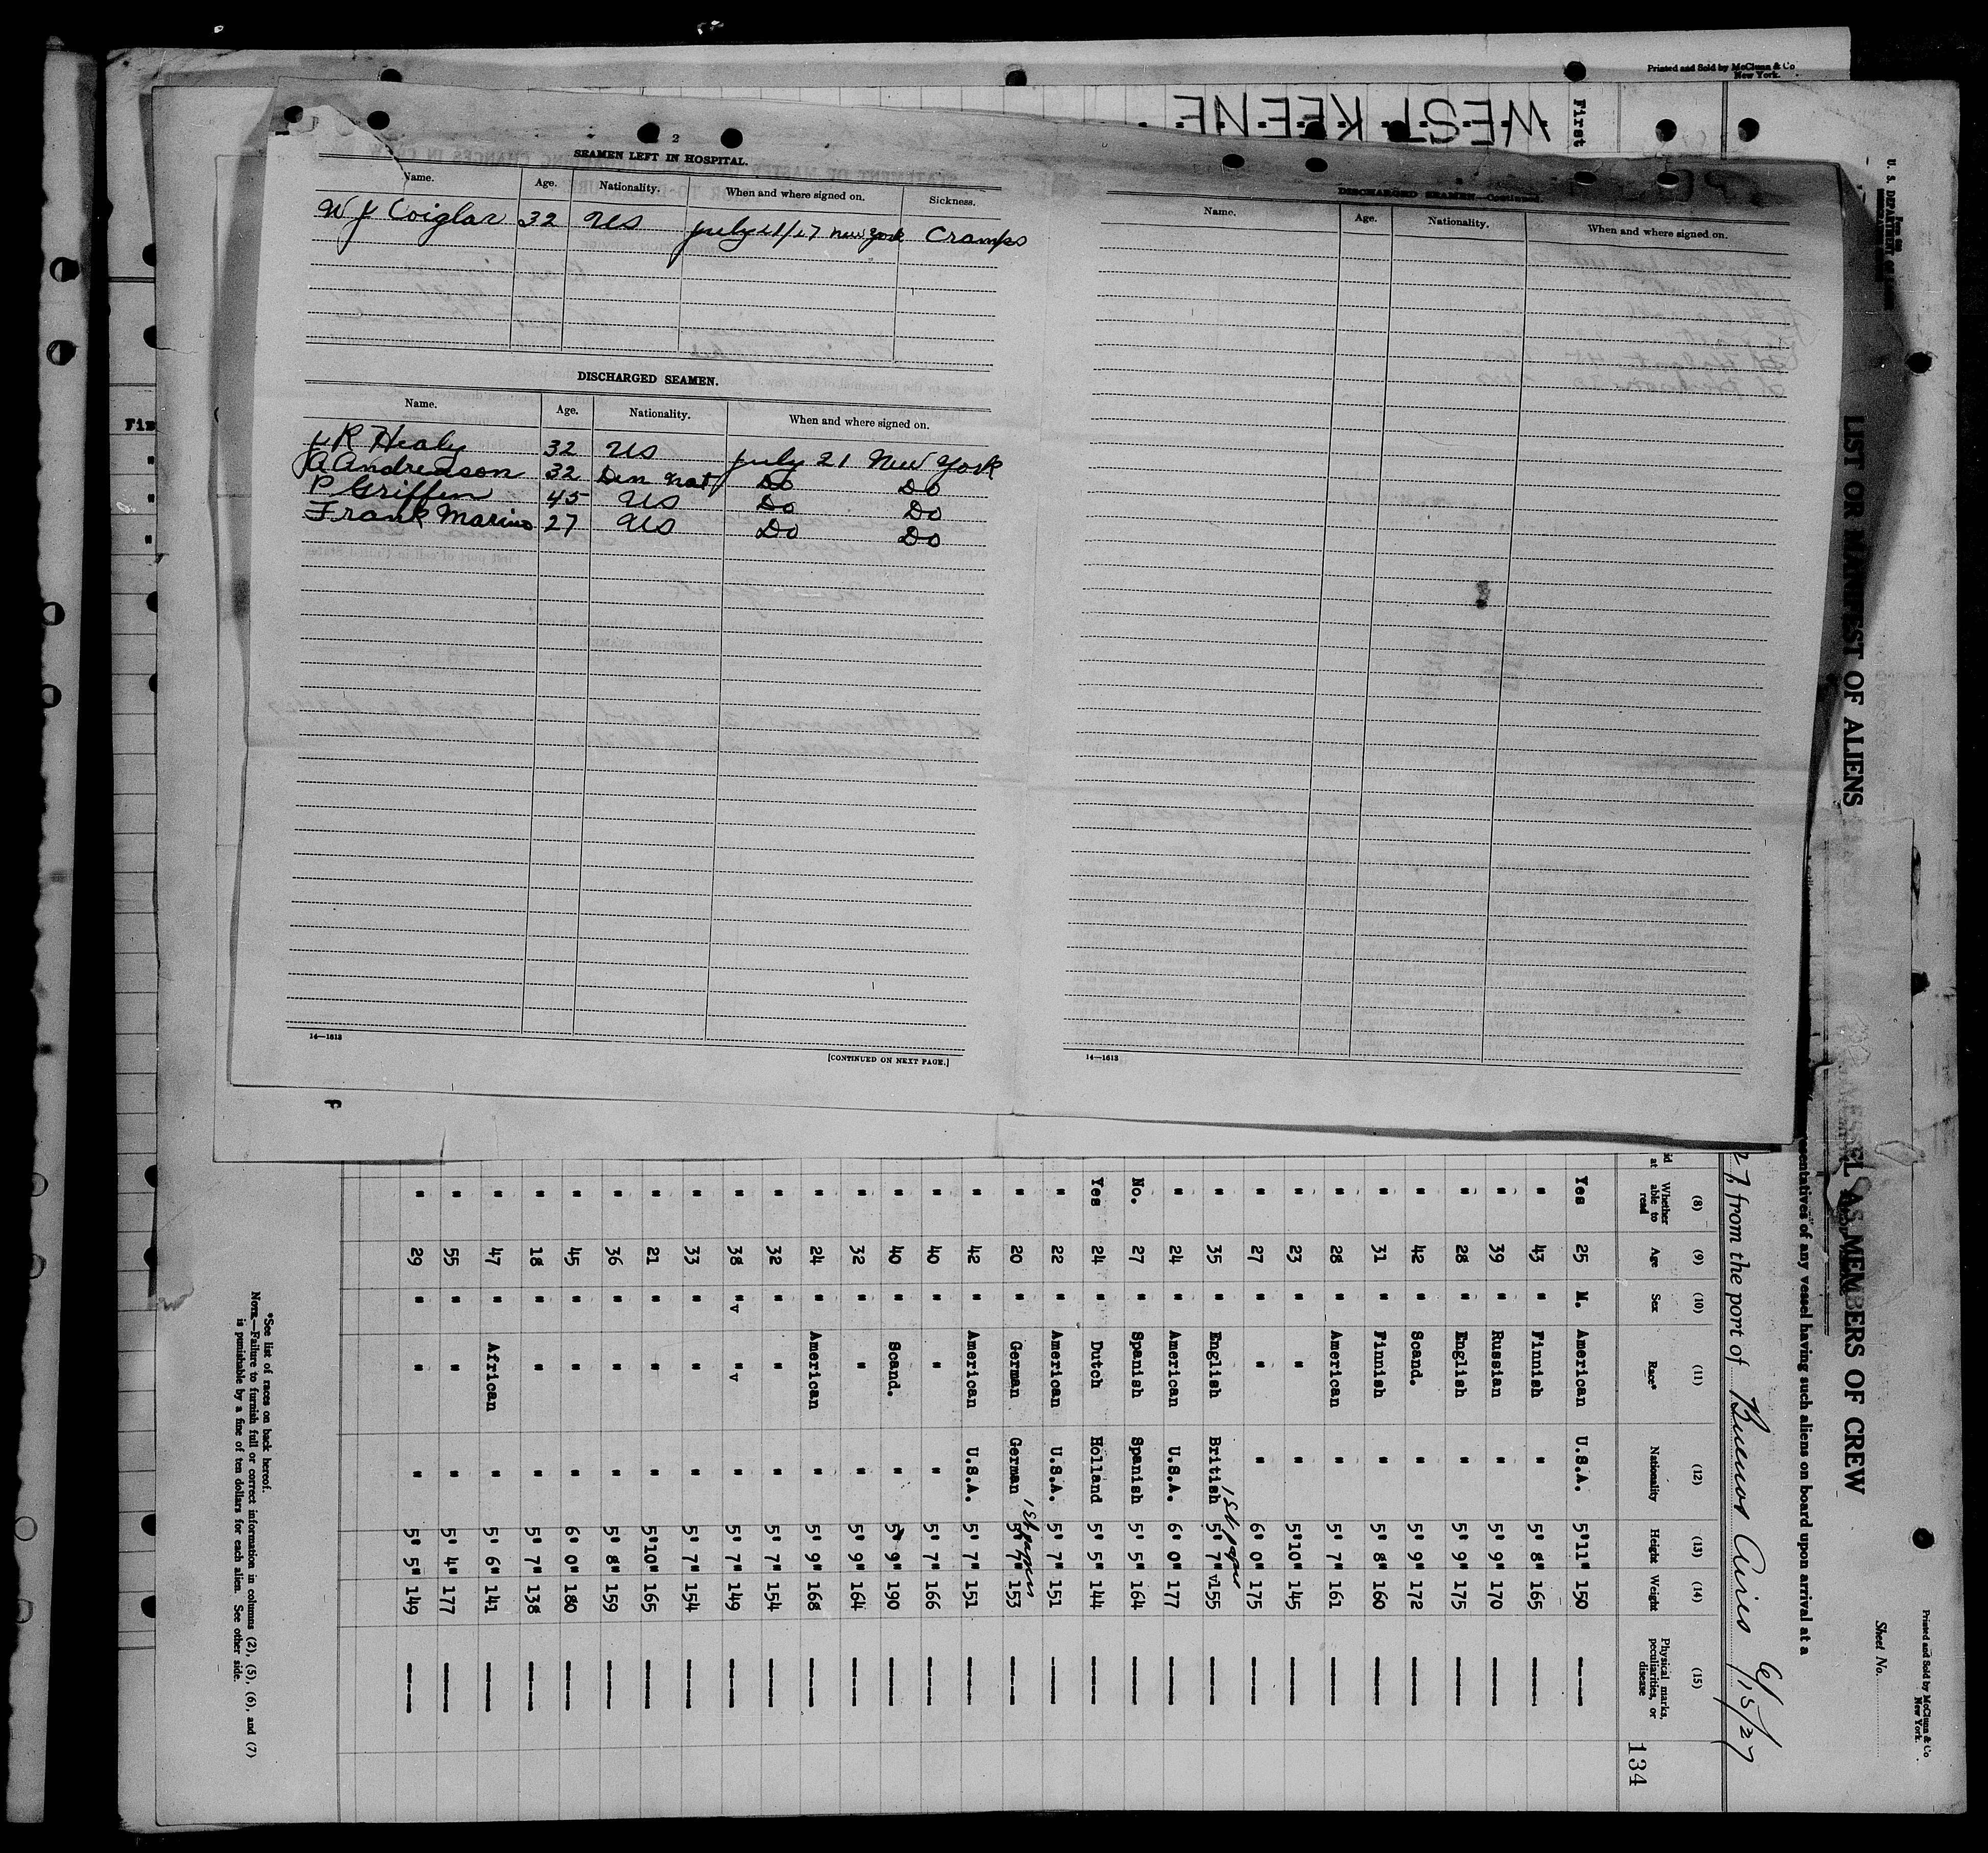 Printed and Sold by McClunn & Co
New York.
WEST KEENE
First
2
SEAMEN LEFT IN HOSPITAL.
Name. Age. Nationality. When and where signed on. Sickness.
W J Coiglar 32 US July 21/27 New York Cramps
DISCHARGED SEAMEN.
Name. Age. Nationality. When and where signed on.
J R Healy 32 US July 21 New York
A Andreason 32 Den Nat Do Do
P Griffin 45 US Do Do
Frank Marino 27 US Do Do
14—1613
[CONTINUED ON NEXT PAGE.]
DISCHARGED SEAMEN—Continued.
Name. Age. Nationality. When and where signed on.
14—1613
U. S. DEPARTMENT OF LABOR
LIST OR MANIFEST OF ALIENS AS MEMBERS OF CREW
Sheet No.
Printed and Sold by McClunn & Co
New York.
representatives of any vessel having such aliens on board upon arrival at a
27, from the port of Buenos Aires 6/15/27
134
(8) (9) (10) (11) (12) (13) (14) (15)
Whether able to read Age Sex Race* Nationality Height Weight Physical marks, peculiarities, or disease
Yes 25 M. American U.S.A. 5'11" 150 ----
" 43 " Finnish " 5' 8" 165 ----
" 39 " Russian " 5' 9" 170 ----
" 28 " English " 5' 9" 175 ----
" 42 " Scand. " 5' 9" 172 ----
" 31 " Finnish " 5' 8" 160 ----
" 28 " American " 5' 7" 161 ----
" 23 " " " 5'10" 145 ----
" 27 " " " 6' 0" 175 ----
" 35 " English British 1st papers 5' 7" v155 ----
" 24 " American U.S.A. 6' 0" 177 ----
No. 27 " Spanish Spanish 5' 5" 164 ----
Yes 24 " Dutch Holland 5' 5" 144 ----
" 22 " American U.S.A. 5' 7" 151 ----
" 20 " German German 1st papers 5' 7" 153 ----
" 42 " American U.S.A. 5' 7" 151 ----
" 40 " " " 5' 7" 166 ----
" 40 " Scand. " 5' 9" 190 ----
" 32 " " " 5' 9" 164 ----
" 24 " American " 5' 9" 168 ----
" 32 " " " 5' 7" 154 ----
" 38 "v "v " 5' 7" 149 ----
" 33 " " " 5' 7" 154 ----
" 21 " " " 5'10" 165 ----
" 36 " " " 5' 8" 159 ----
" 45 " " " 6' 0" 180 ----
" 18 " " " 5' 7" 138 ----
" 47 " African " 5' 6" 141 ----
" 55 " " " 5' 4" 177 ----
" 29 " " " 5' 5" 149 ----
*See list of races on back hereof.
NOTE.—Failure to furnish full or correct information in columns (2), (5), (6), and (7)
is punishable by a fine of ten dollars for each alien. See other side.